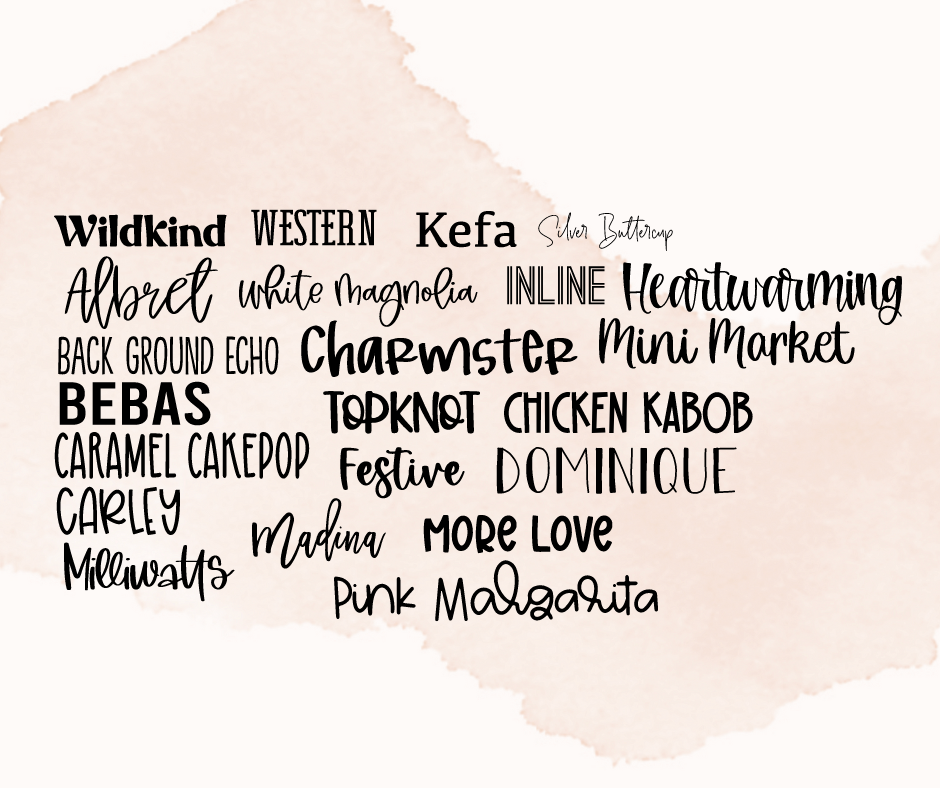 Wildkind WESTERN Kefa Silver Buttercup
Albret white magnolia INLINE Heartwarming
BACK GROUND ECHO Charmster Mini Market
BEBAS TOPKNOT CHICKEN KABOB
CARAMEL CAKEPOP Festive DOMINIQUE
CARLEY Madina MORE LOVE
Milliwatts Pink Margarita